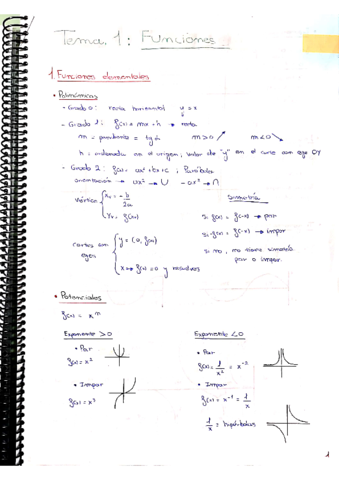 Tema 1: Funciones
1. Funciones elementales
• Polinómicas
- Grado 0: recta horizontal y = k
- Grado 1: f(x) = mx + h → recta
m = pendiente = tg α m>0 m<0
h = ordenada en el origen, valor de "y" en el corte con eje OY
- Grado 2: f(x) = ax² + bx + c ; Parábola
orientación → ax² → ∪ -ax² → ∩
Simetría
Vértice { Xv = -b/2a
Yv = f(xv)
Si f(x) = f(-x) → par
Si -f(x) = f(-x) → impar
Si no, no tiene simetría
par o impar.
cortes con
ejes
{ y = (0, f(0))
x → f(x) = 0 y resolver
• Potenciales
f(x) = x^n
Exponente > 0
• Par
f(x) = x²
• Impar
f(x) = x³
Exponente < 0
• Par
f(x) = 1/x² = x⁻²
• Impar
f(x) = x⁻¹ = 1/x
1/x = hipérbolas
1